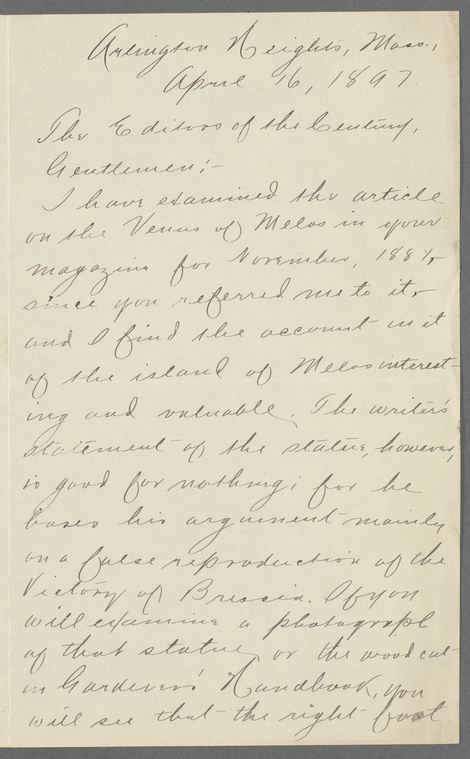 Arlington Heights, Mass.,
April 16, 1897.
The Editors of the Century,
Gentlemen;-
I have examined the article
on the Venus of Melos in your
magazine for November, 1881,
since you referred me to it,
and I find the account in it
of the island of Melos interest-
ing and valuable. The writer's
statement of the statue, however,
is good for nothing; for he
bases his argument mainly
on a false reproduction of the
Victory of Brescia. If you
will examine a photograph
of that statue or the woodcut
in Gardener's Handbook, you
will see that the right foot